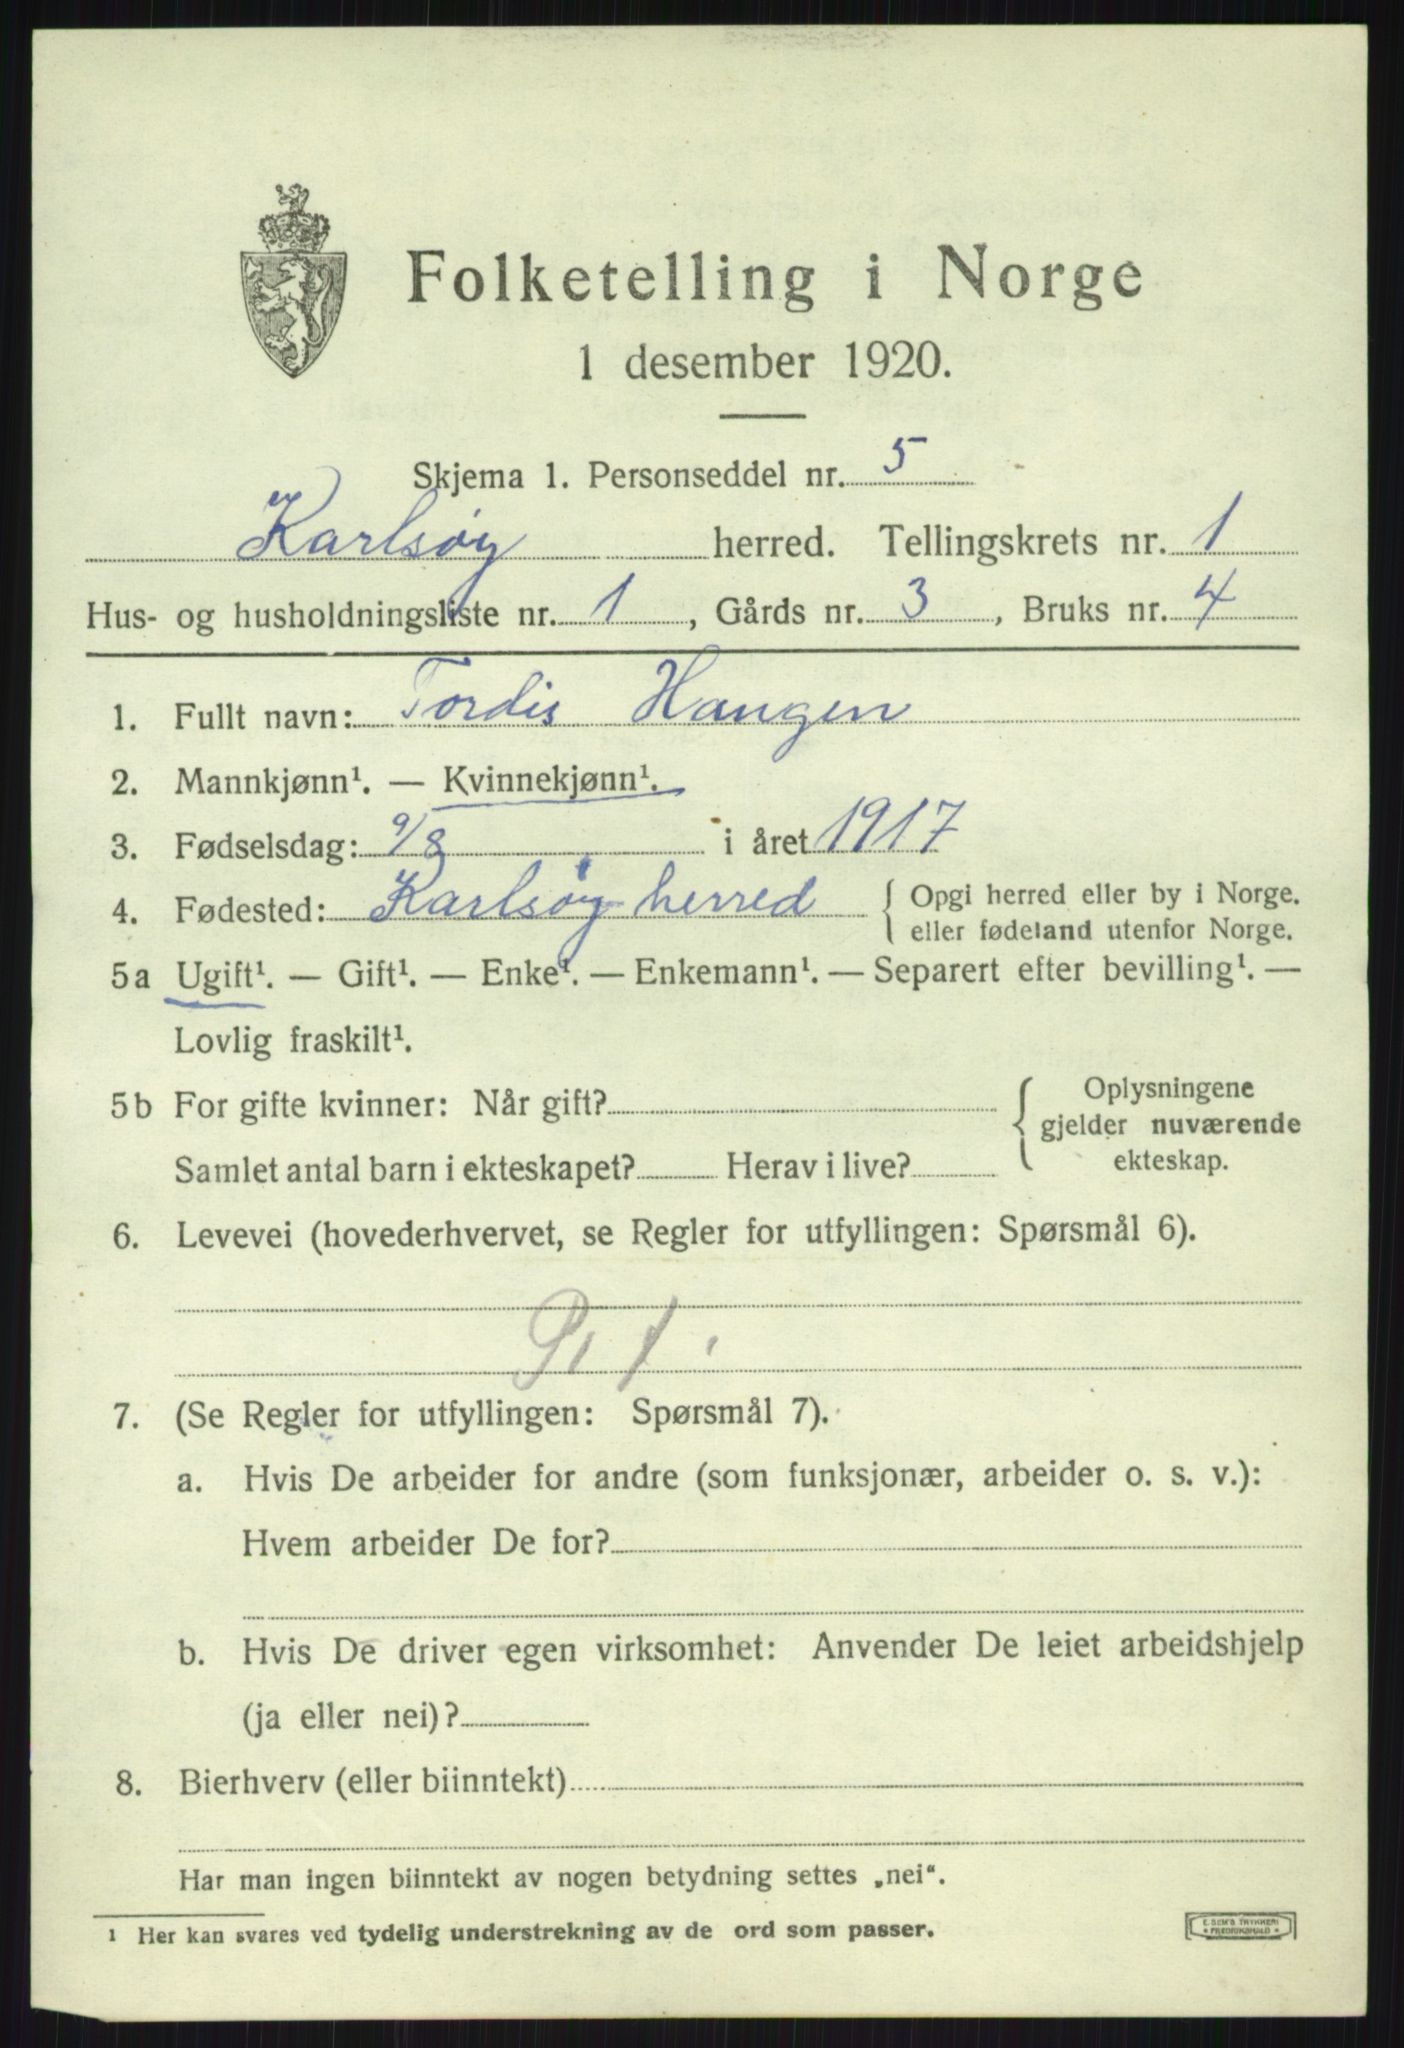 Folketelling i Norge
1 desember 1920.
Skjema 1. Personseddel nr. 5
Karlsøy herred. Tellingskrets nr. 1
Hus- og husholdningsliste nr. 1, Gårds nr. 3, Bruks nr. 4
1. Fullt navn: Tordis Haugen
2. Mannkjønn¹. — Kvinnekjønn¹.
3. Fødselsdag: 9/8 i året 1917
4. Fødested: Karlsøy herred { Opgi herred eller by i Norge.
eller fødeland utenfor Norge.
5a Ugift¹. — Gift¹. — Enke¹. — Enkemann¹. — Separert efter bevilling¹. —
Lovlig fraskilt¹.
5b For gifte kvinner: Når gift? { Oplysningene
gjelder nuværende
Samlet antal barn i ekteskapet? Herav i live? ekteskap.
6. Levevei (hovederhvervet, se Regler for utfyllingen: Spørsmål 6).
7. (Se Regler for utfyllingen: Spørsmål 7).
a. Hvis De arbeider for andre (som funksjonær, arbeider o. s. v.):
Hvem arbeider De for?
b. Hvis De driver egen virksomhet: Anvender De leiet arbeidshjelp
(ja eller nei)?
8. Bierhverv (eller biinntekt)
Har man ingen biinntekt av nogen betydning settes „nei“.
1 Her kan svares ved tydelig understrekning av de ord som passer.
E. SEM'S TRYKKERI
FREDRIKSHALD